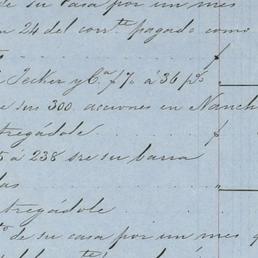 de su casa por un mes
n 24 del corr.te pagado como
Jecker y C.a f 7% á 36 p.s
e sus 300. acciones en Nanch
tregádole
5 á 238 sre su barra
das
tregádole
to de su casa por un mes q